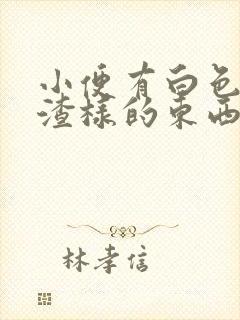 小便有白色
渣样的东西
林孝信